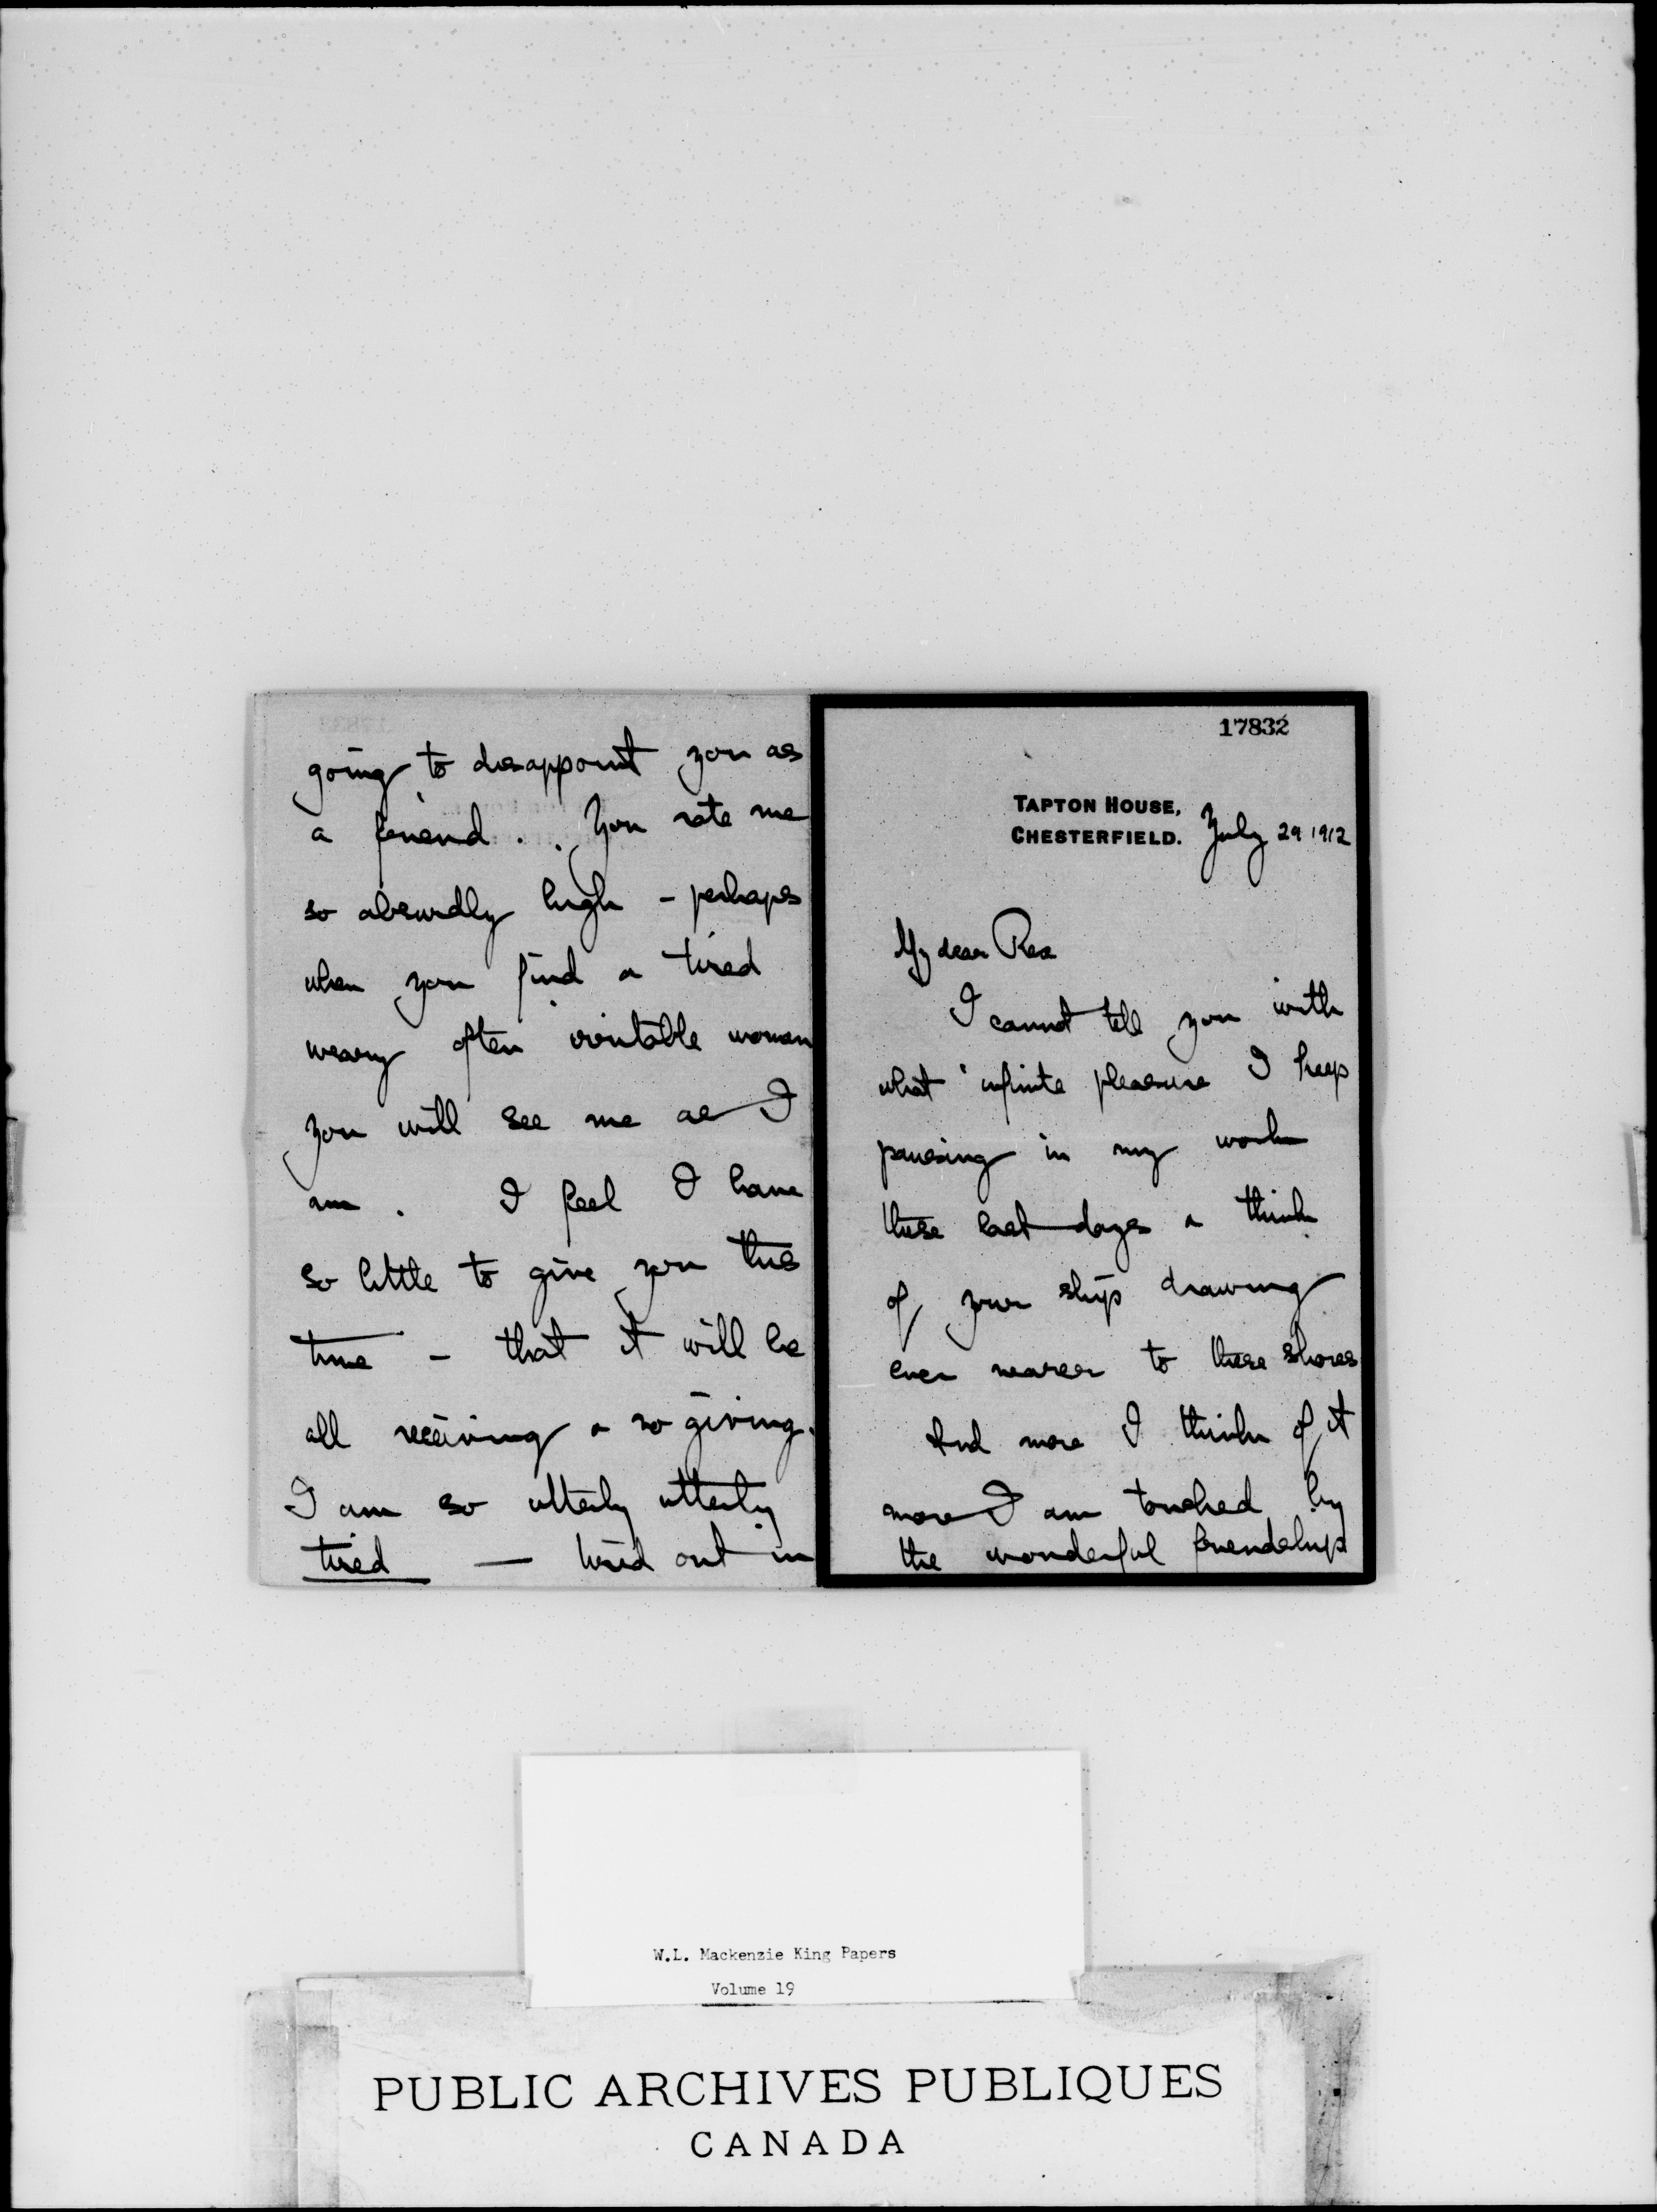 17832
TAPTON HOUSE,
CHESTERFIELD. July 29 1912
My dear Rex
I cannot tell you with
what infinite pleasure I keep
pausing in my work
these last days & think
of your ship drawing
ever nearer to these shores
And more I think of it
more I am touched by
the wonderful friendship
going to disappoint you as
a friend. . You rate me
so absurdly high - perhaps
when you find a tired
weary often irritable woman
you will see me as I
am. I feel I have
so little to give you this
time - that it will be
all receiving & no giving.
I am so utterly utterly
tired — tired out in
W.L. Mackenzie King Papers
Volume 19
PUBLIC ARCHIVES PUBLIQUES
CANADA